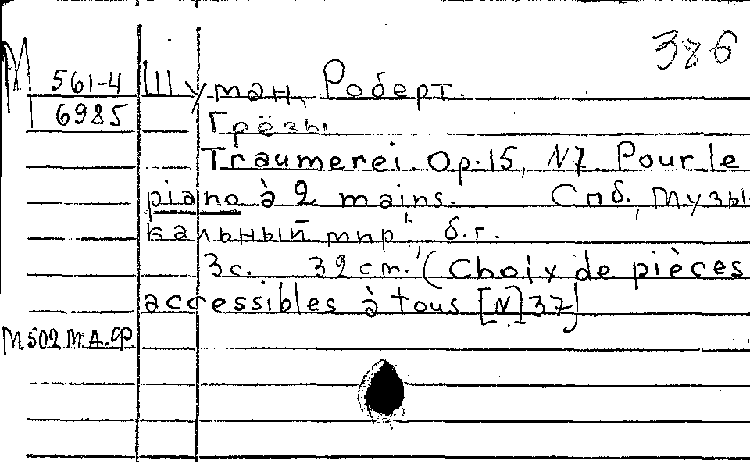 386
М 561-4 Шуман, Роберт.
6985 Грёзы.
Traumerei. Op.15, N7. Pour le
piano à 2 mains. Спб., "Музы-
кальный мир", б.г.
3с. 32 cm. (Choix de pièces
accessibles à tous [N] 37)
M502 M.A.